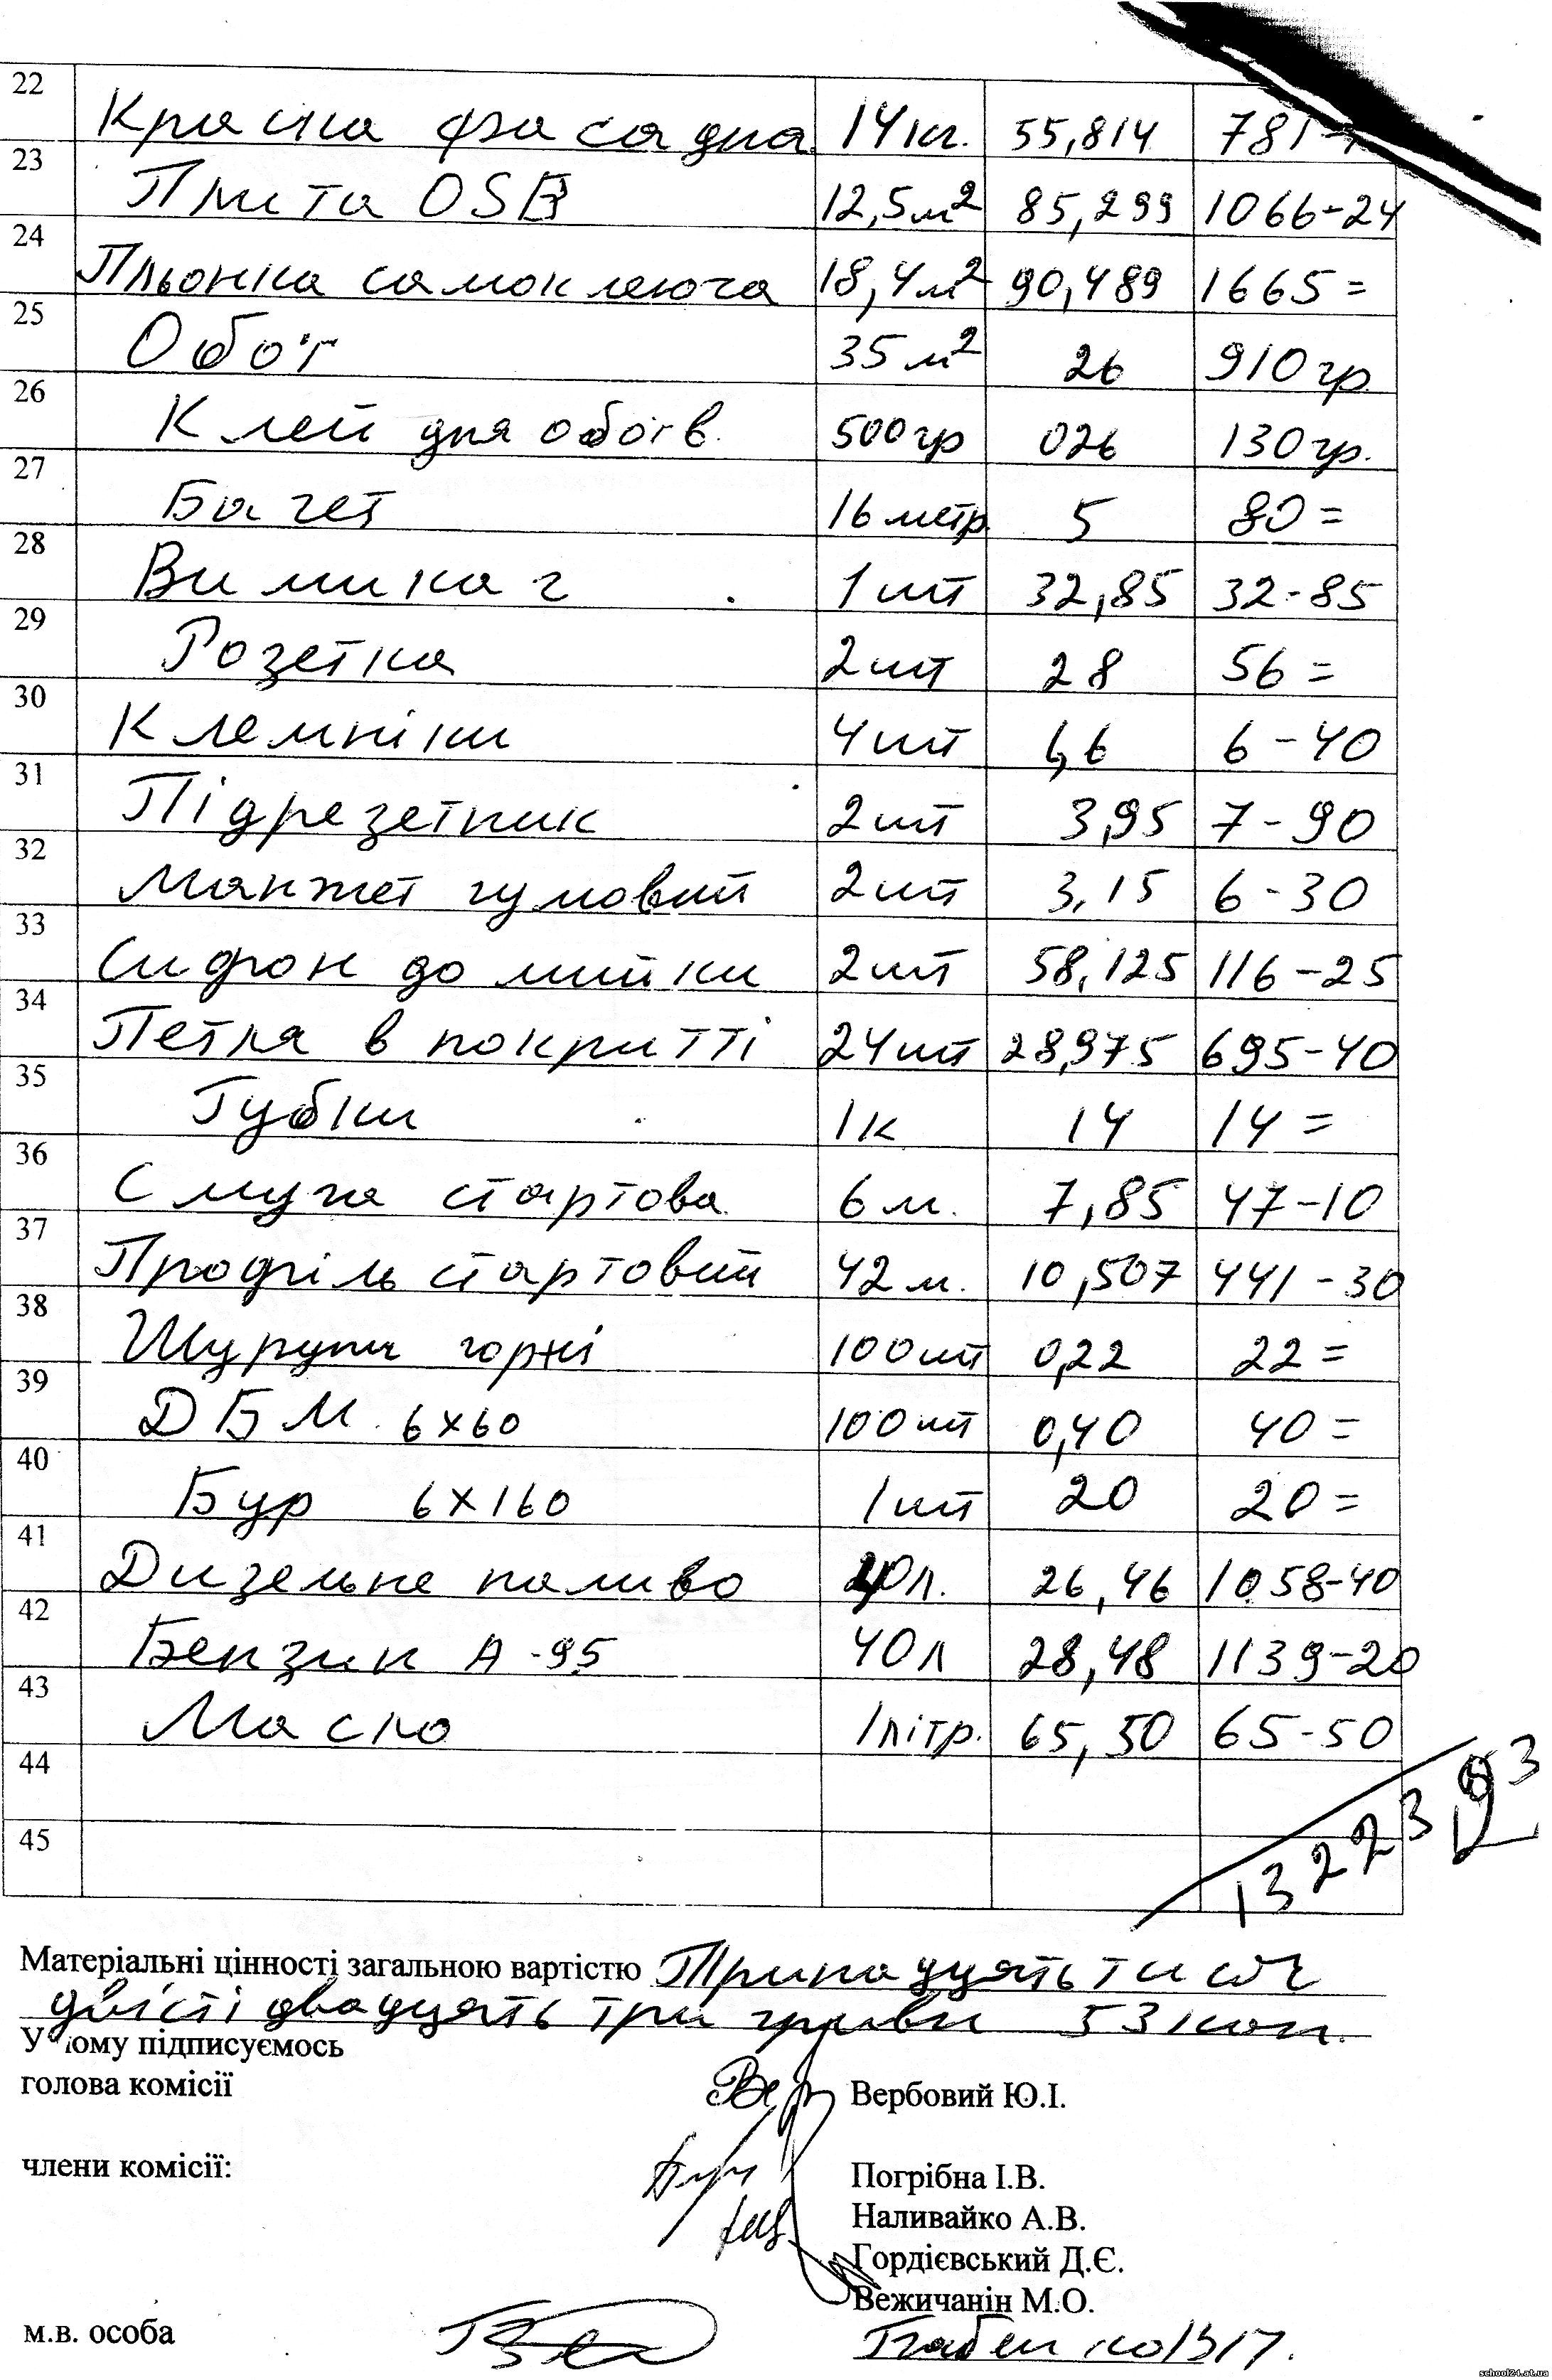 22 Краска фасадна 14кг. 55,814 781-
23 Плита OSB 12,5м² 85,299 1066-24
24 Пльонка самоклеюча 18,4м² 90,489 1665=
25 Обої 35м² 26 910гр
26 Клей для обоїв. 500гр 026 130гр.
27 Багет 16метр. 5 80=
28 Вимикач 1шт 32,85 32-85
29 Розетка 2шт 28 56=
30 Клемніки 4шт 1,6 6-40
31 Підрезетник 2шт 3,95 7-90
32 Манжет гумовий 2шт 3,15 6-30
33 Сифон до мийки 2шт 58,125 116-25
34 Петля в покритті 24шт 28,975 695-40
35 Губки 1к 14 14=
36 Смуга стартова 6м. 7,85 47-10
37 Профіль стартовий 42м. 10,507 441-30
38 Шурупи чорні 100шт 0,22 22=
39 ДБМ 6х60 100шт 0,40 40=
40 Бур 6х160 1шт 20 20=
41 Дизельне паливо 40л. 26,46 1058-40
42 Бензин А-95 40л 28,48 1139-20
43 Масло 1літр. 65,50 65-50
44
45
13223
Матеріальні цінності загальною вартістю Тринадцять тисяч
двісті двадцять три гривні 53 коп.
У чому підписуємось
голова комісії Вербовий Ю.І.
члени комісії: Погрібна І.В.
Наливайко А.В.
Гордієвський Д.Є.
Вежичанін М.О.
м.в. особа
school24.at.ua